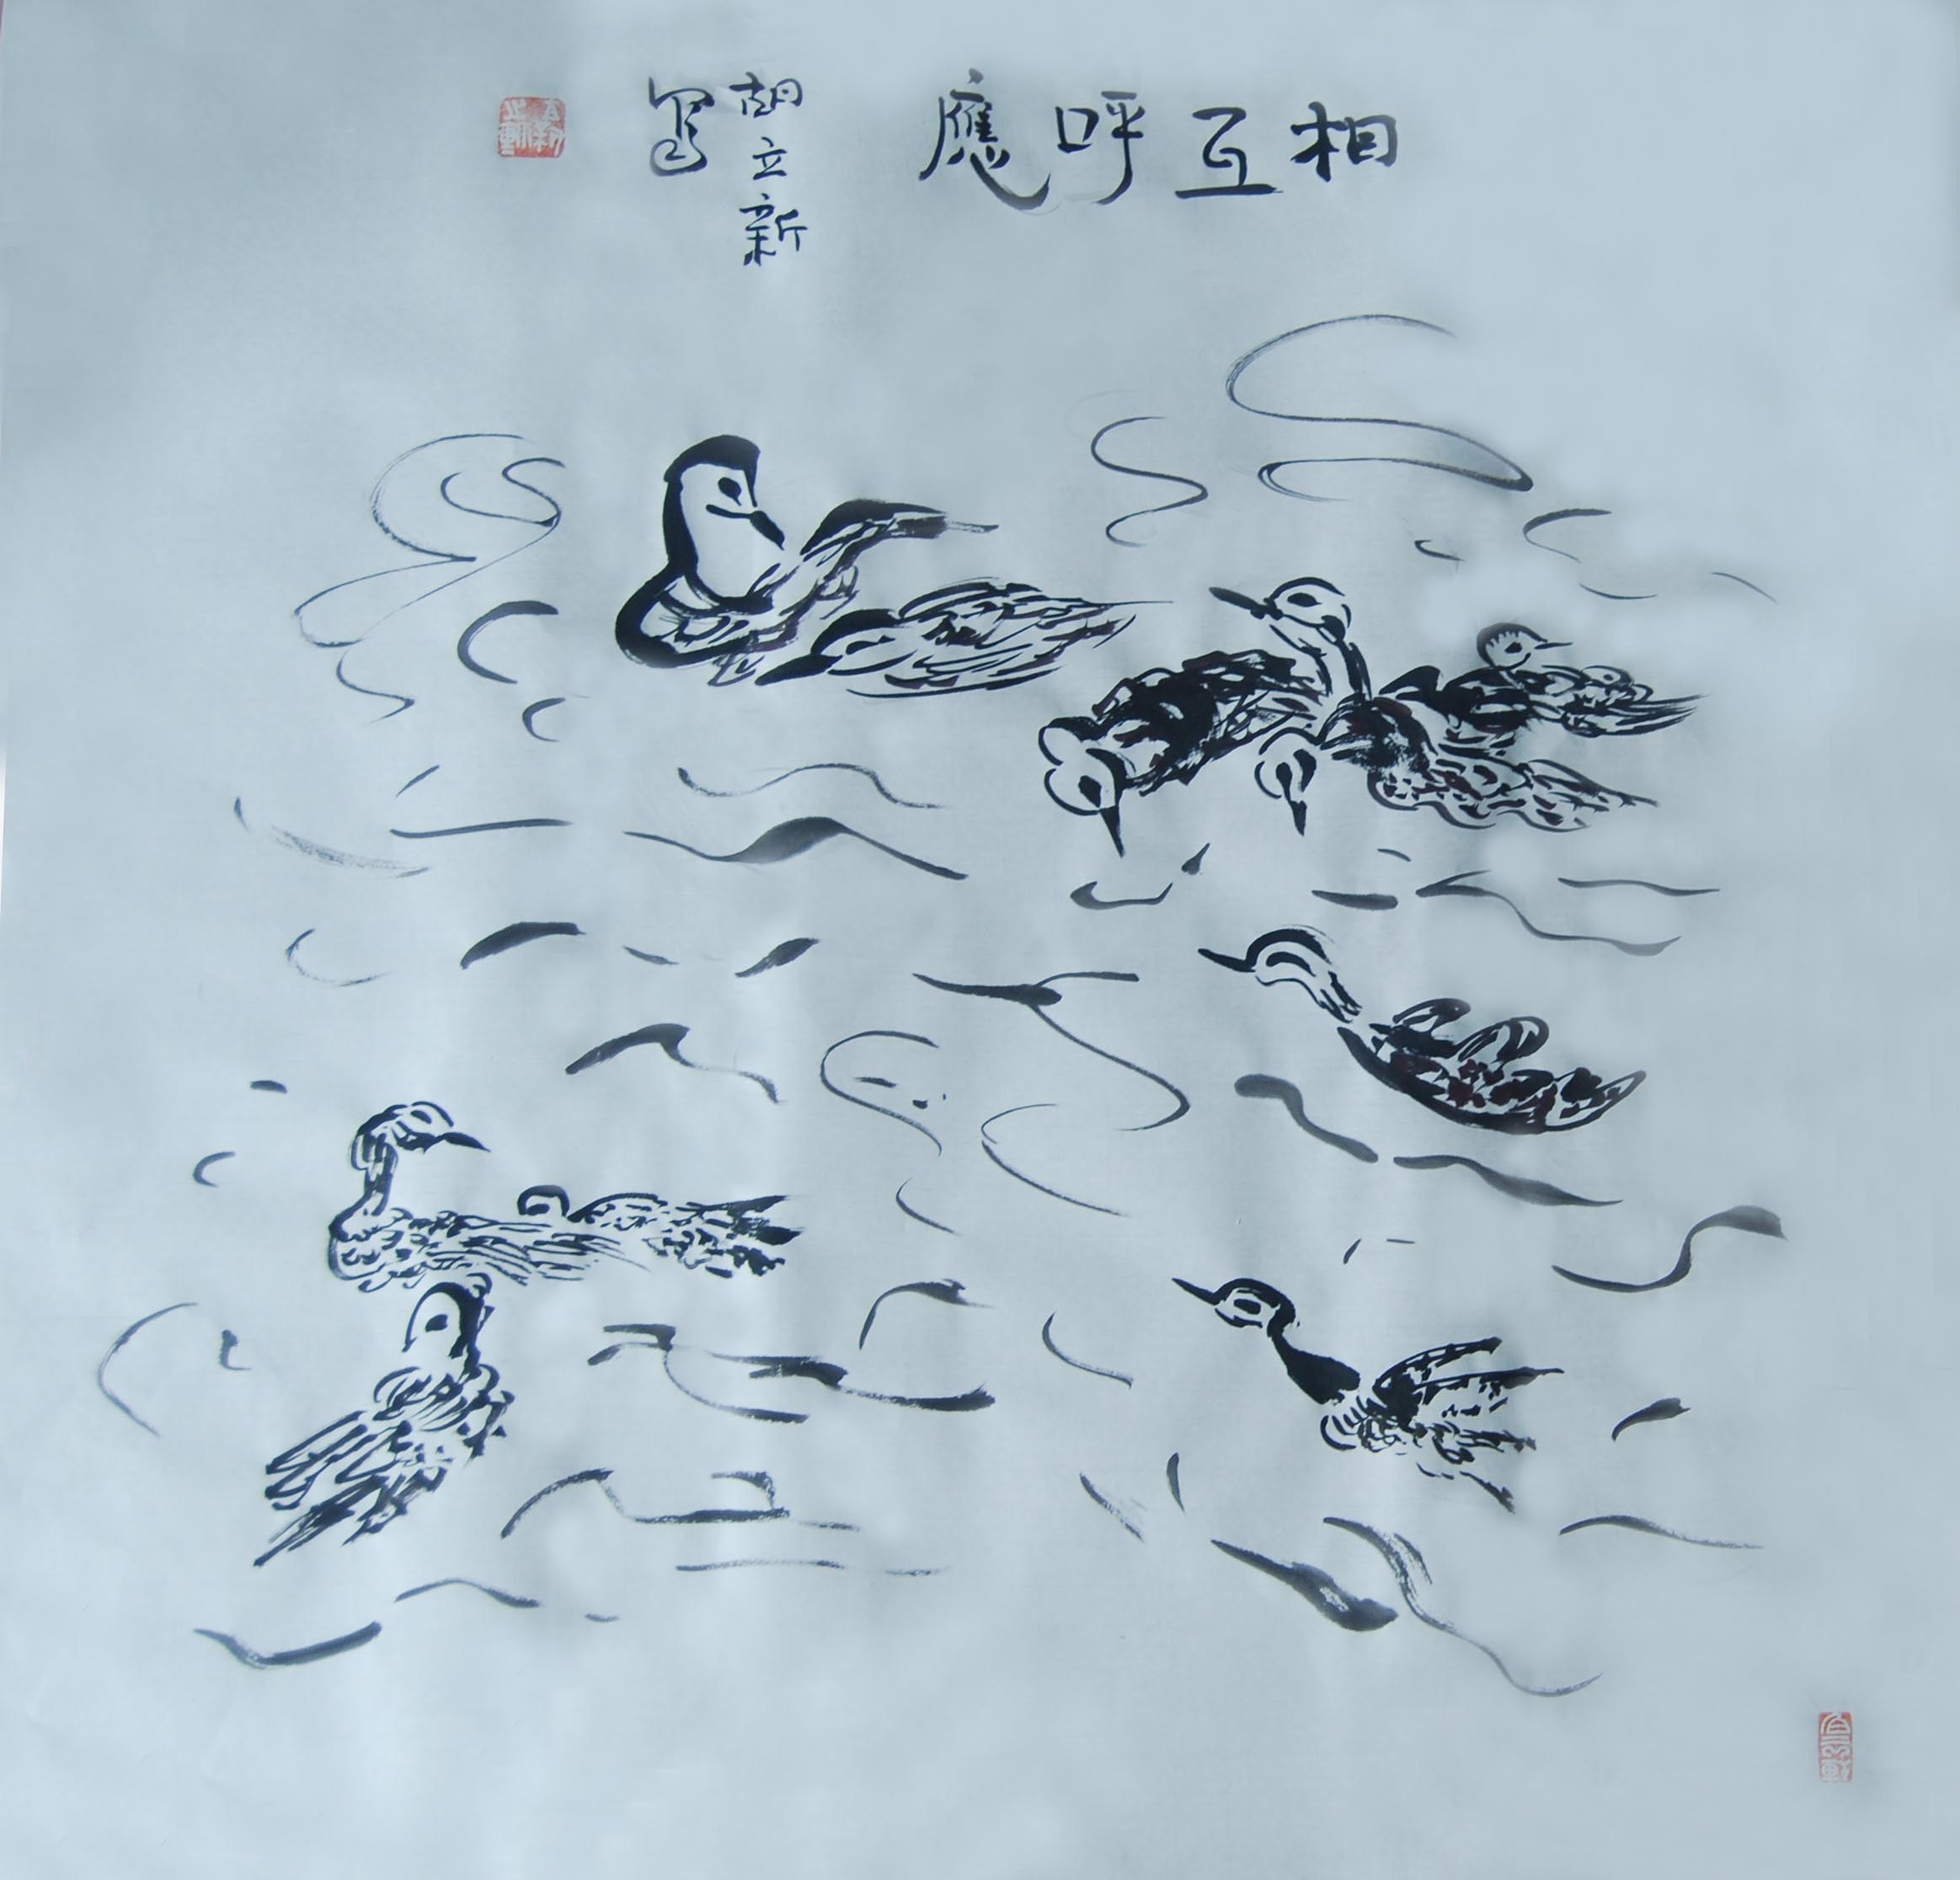 相互呼應
胡立新
寫